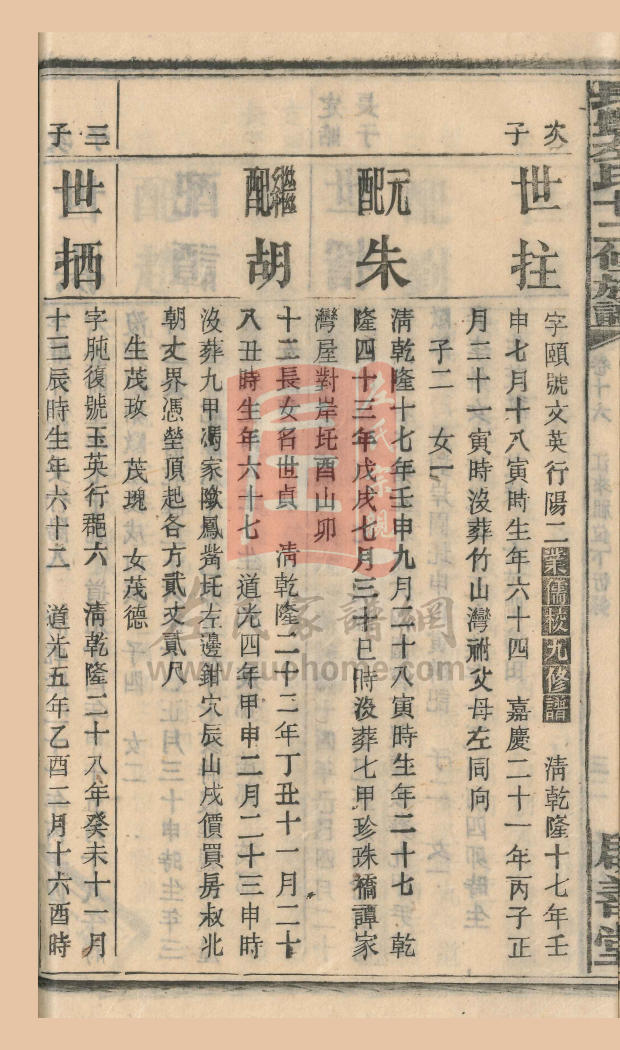 次子
世拄
字頤號文英行陽二業儒校九修譜 清乾隆十七年壬
申七月十八寅時生年六十四 嘉慶二十一年丙子正
月二十一寅時沒葬竹山灣祔父母左同向
子二 女一
元配
朱
清乾隆十七年壬申九月二十八寅時生年二十七 乾
隆四十三年戊戌七月三十巳時沒葬七甲珍珠橋譚家
灣屋對岸圫酉山卯
繼配
胡
十二長女名世貞 清乾隆二十二年丁丑十一月二十
八丑時生年六十七 道光四年甲申二月二十三申時
沒葬九甲馮家墩鳳觜圫左邊鉗穴辰山戌價買房叔北
朝丈界憑塋頂起各方貳丈貳尺
生茂玫 茂瑰 女茂德
三子
世拪
字肫復號玉英行郶六 清乾隆二十八年癸未十一月
十三辰時生年六十二 道光五年乙酉二月十六酉時
李氏十二修族譜
卷十六
善堂
www.zuphome.com